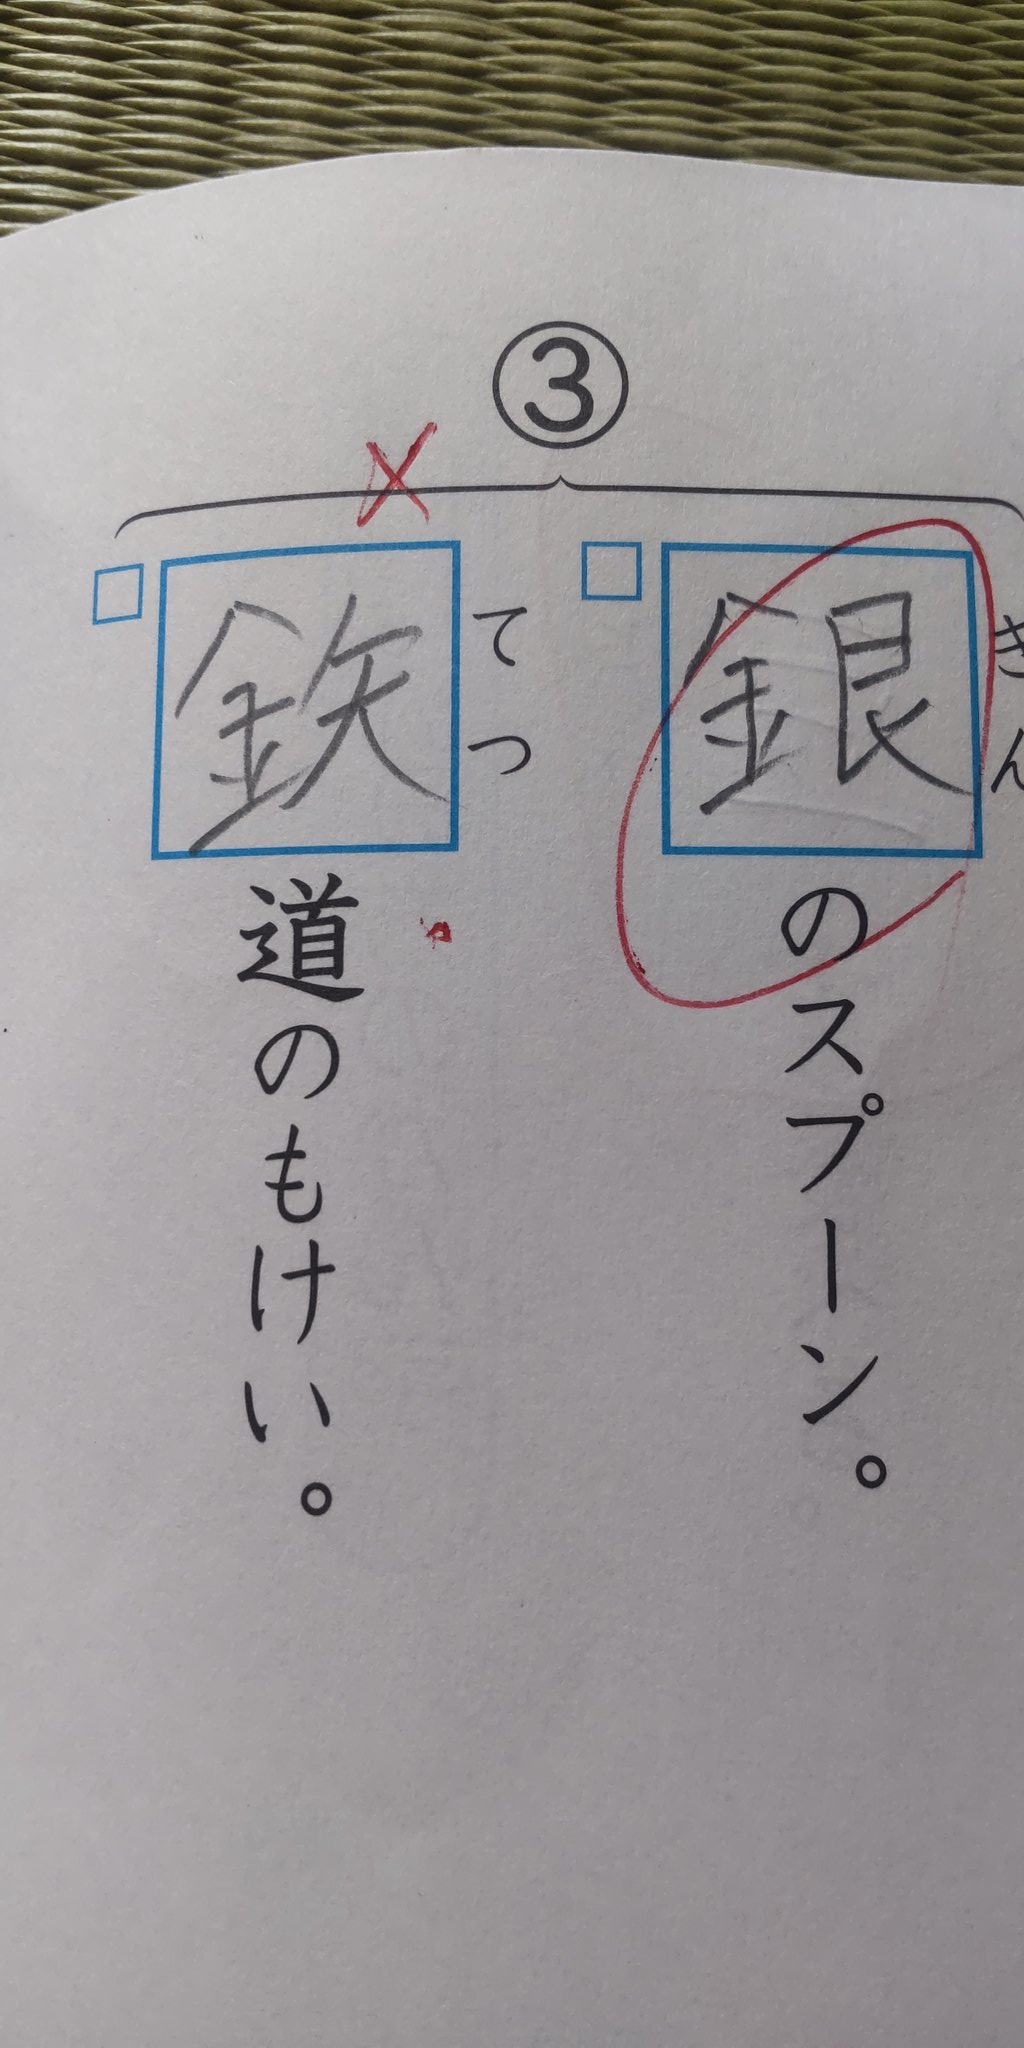 ③
ぎん
銀のスプーン。
てつ
鉃道のもけい。